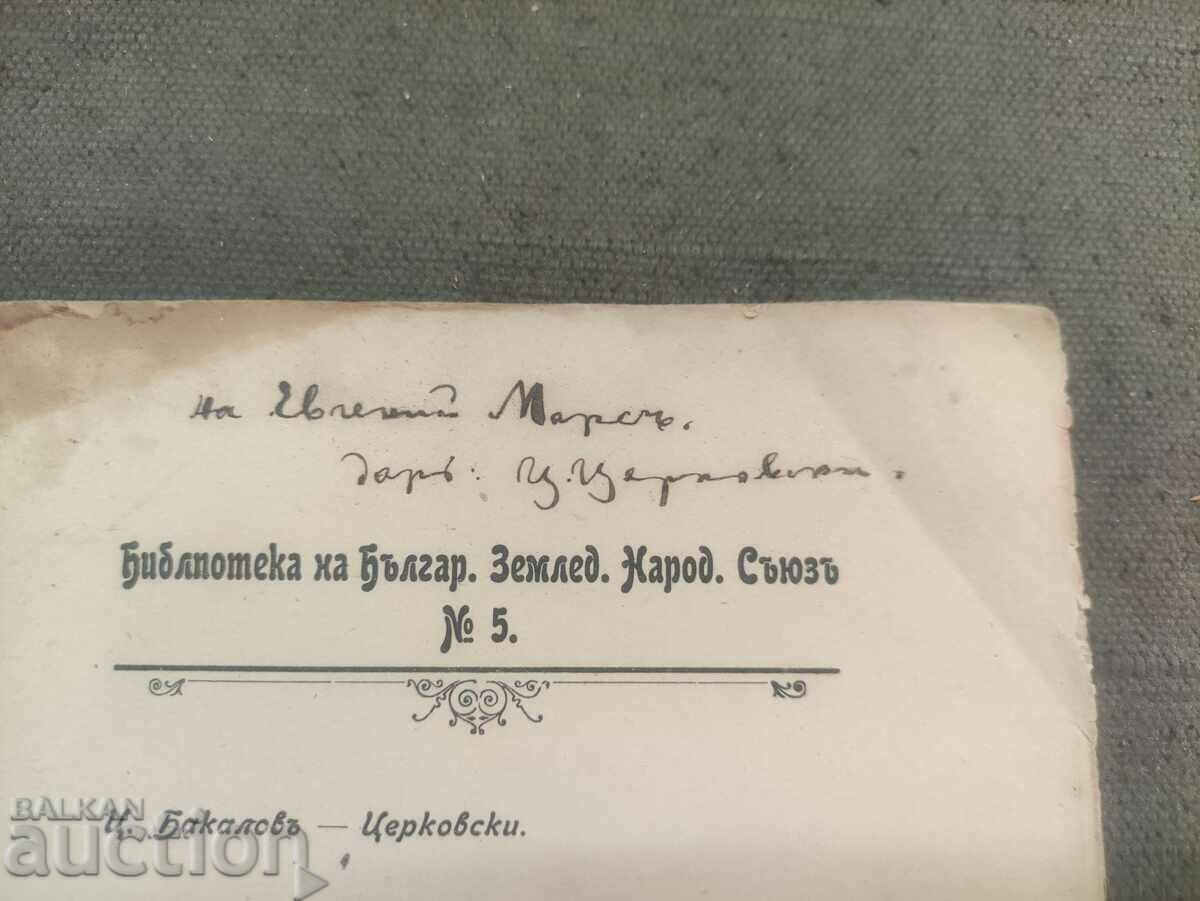 на Евгений Марсъ.
даръ: Ц. Церковски.
Библиотека на Българ. Землед. Народ. Съюзъ
№ 5.
Ц. Бакаловъ — Церковски.
BALKAN
auction